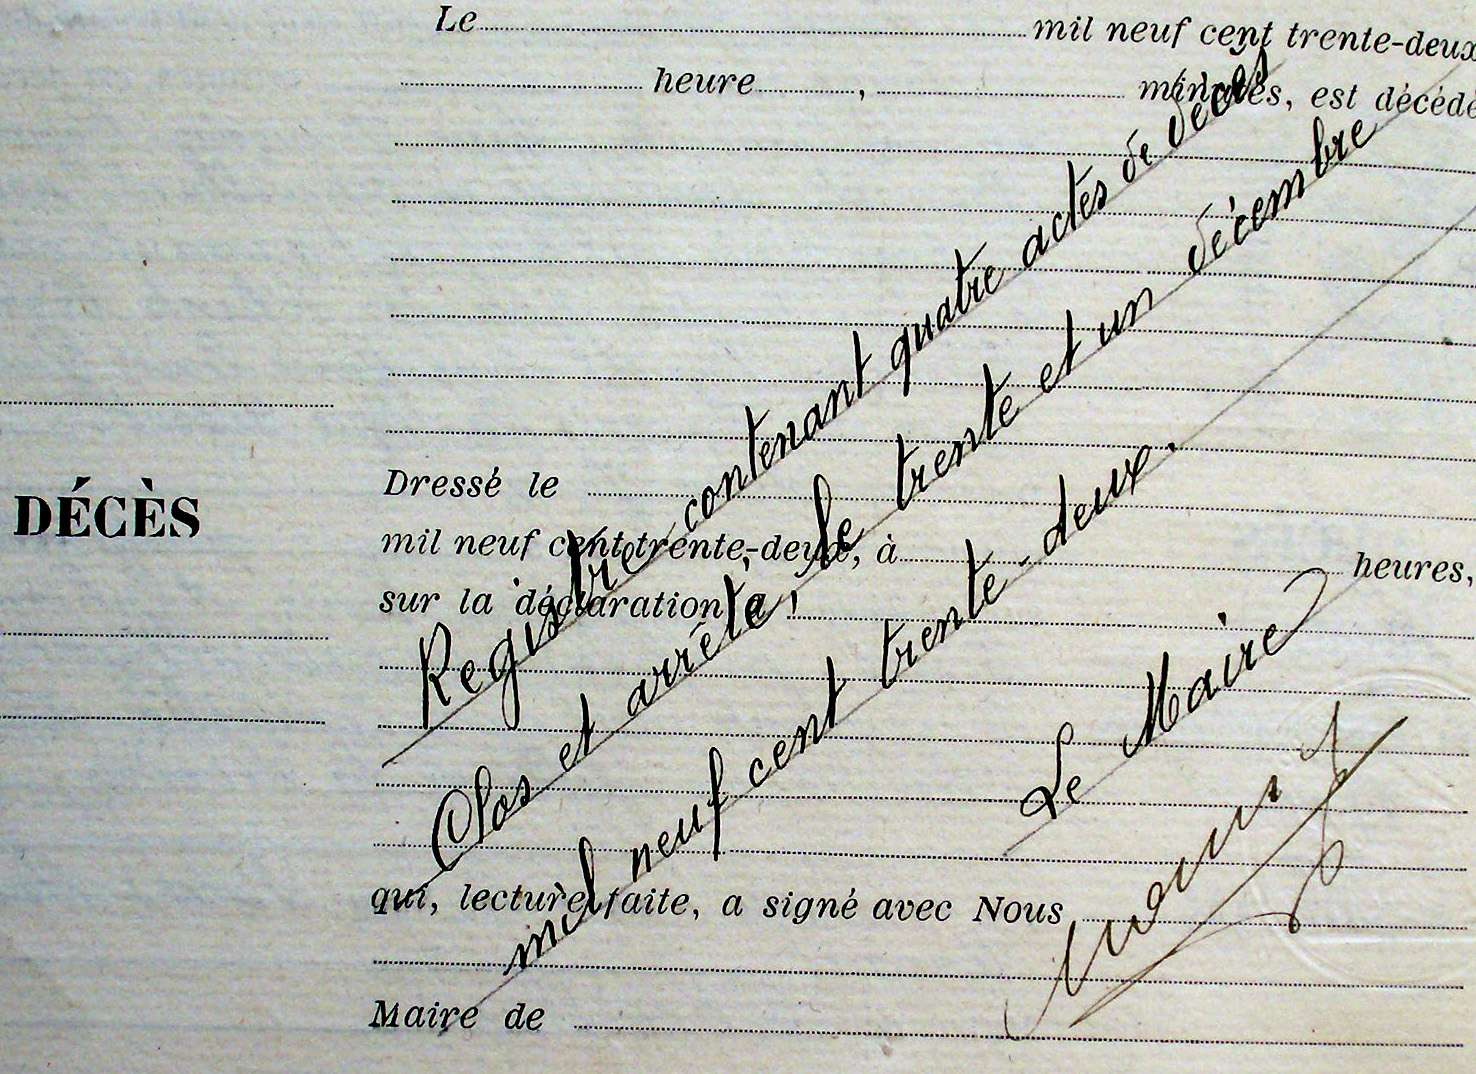 Le mil neuf cent trente-deux
heure , minutes, est décédé
DÉCÈS
Dressé le
mil neuf cent trente-deux, à heures,
sur la déclaration de
qui, lecture faite, a signé avec Nous
Maire de
Registre contenant quatre actes de décès
Clos et arrêté, le trente et un décembre
mil neuf cent trente-deux.
Le Maire